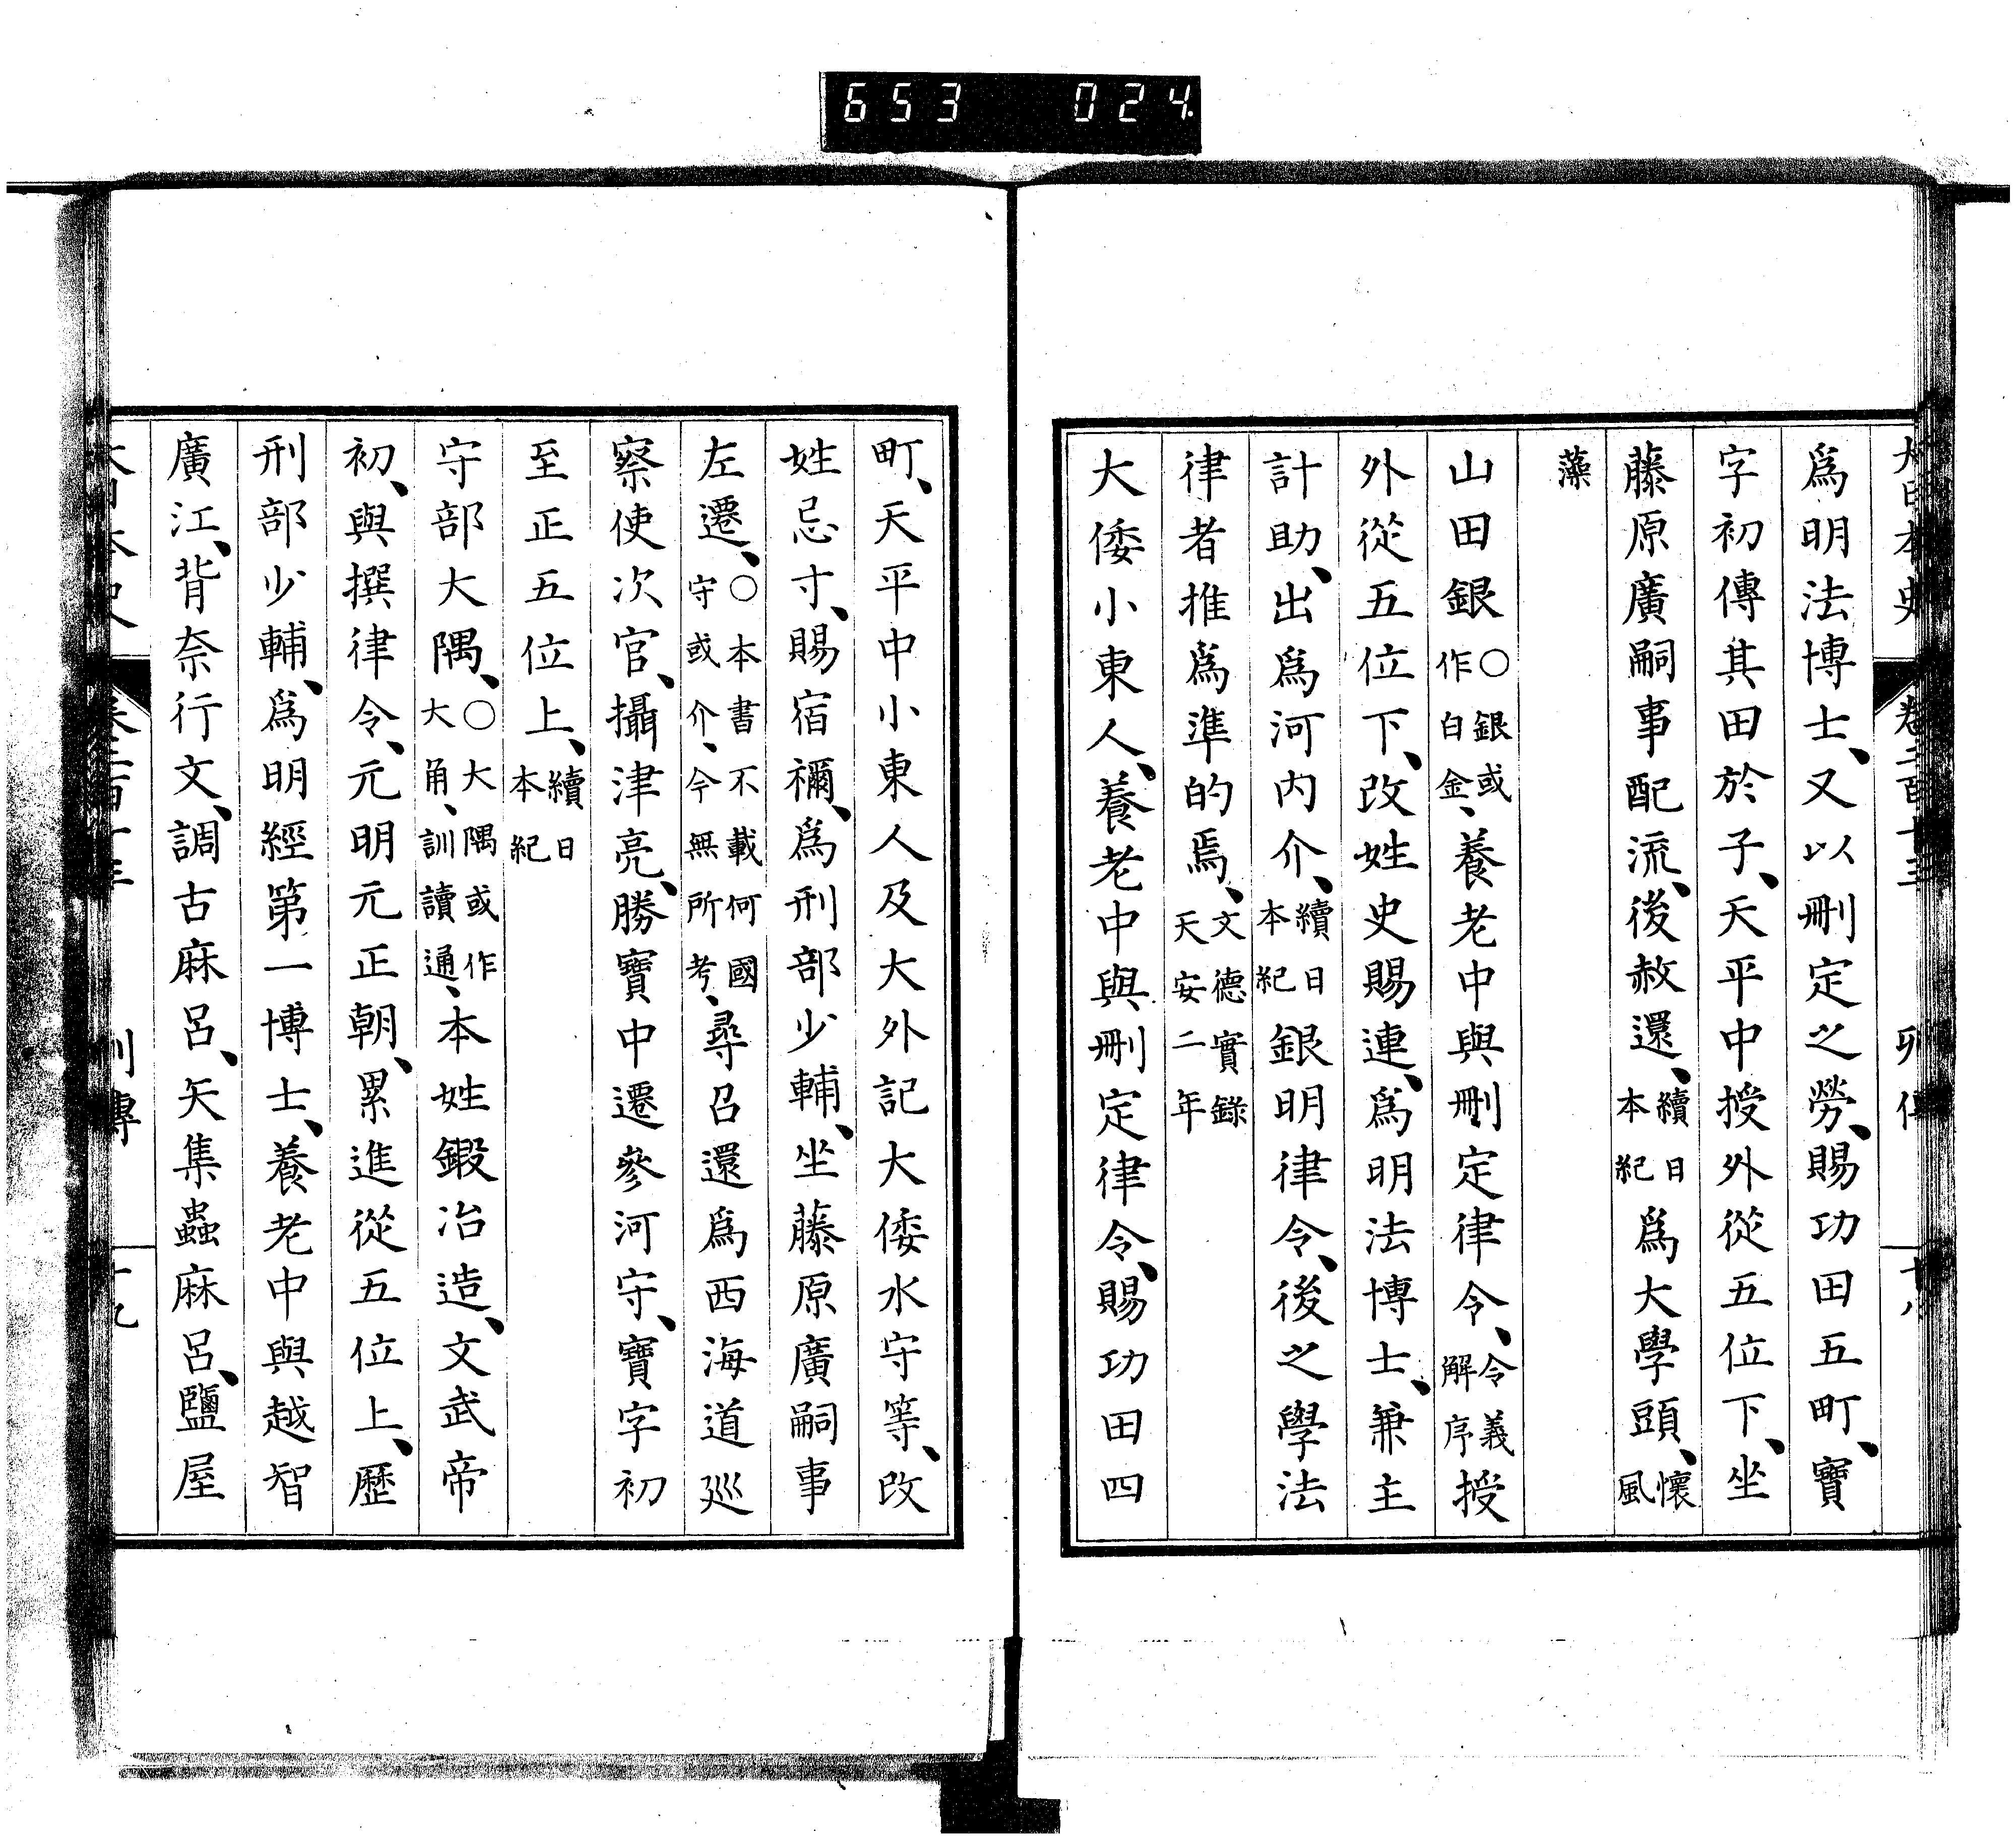 653 024
大日本史 卷二百十三 列傳 十八
爲明法博士、又以刪定之勞、賜功田五町、寶
字初傳其田於子、天平中授外從五位下、坐
藤原廣嗣事配流、後赦還、續日本紀爲大學頭、懷風
藻
山田銀○銀或作白金、養老中與刪定律令、令義解序授
外從五位下、改姓史賜連、爲明法博士、兼主
計助、出爲河內介、續日本紀銀明律令、後之學法
律者推爲準的焉、文德實錄天安二年
大倭小東人、養老中與刪定律令、賜功田四
町、天平中小東人及大外記大倭水守等、改
姓忌寸、賜宿禰、爲刑部少輔、坐藤原廣嗣事
左遷、○本書不載何國守或介、今無所考、尋召還爲西海道巡
察使次官、攝津亮、勝寶中遷參河守、寶字初
至正五位上、續日本紀
守部大隅、○大隅或作大角、訓讀通、本姓鍛冶造、文武帝
初、與撰律令、元明元正朝、累進從五位上、歷
刑部少輔、爲明經第一博士、養老中與越智
廣江、背奈行文、調古麻呂、矢集蟲麻呂、鹽屋
列傳 十九